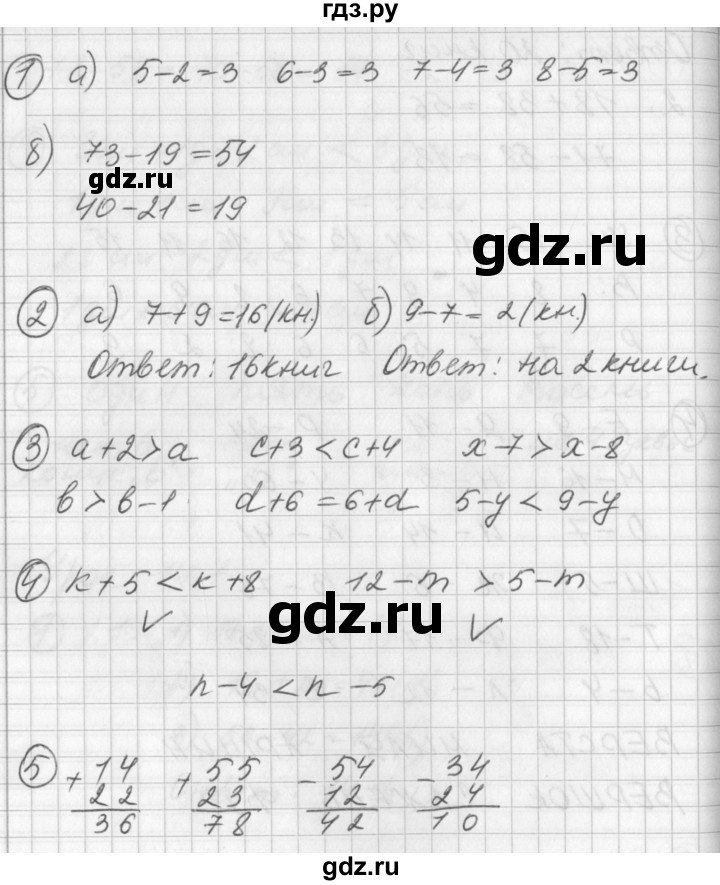 гдз.ру
1 а) 5-2=3 6-3=3 7-4=3 8-5=3
б) 73-19=54
gdz.ru
40-21=19
gdz.ru
2 а) 7+9=16(кн.) б) 9-7=2(кн.)
Ответ: 16 книг Ответ: на 2 книги.
3 a+2>a c+3<c+4 x-7>x-8
в>в-1 d+6=6+d 5-y<9-y
4 k+5<k+8 12-m>5-m
gdz.ru
✓ ✓
n-4<n-5
5 +14 +55 -54 -34
22 23 12 24
36 78 42 10
gdz.ru